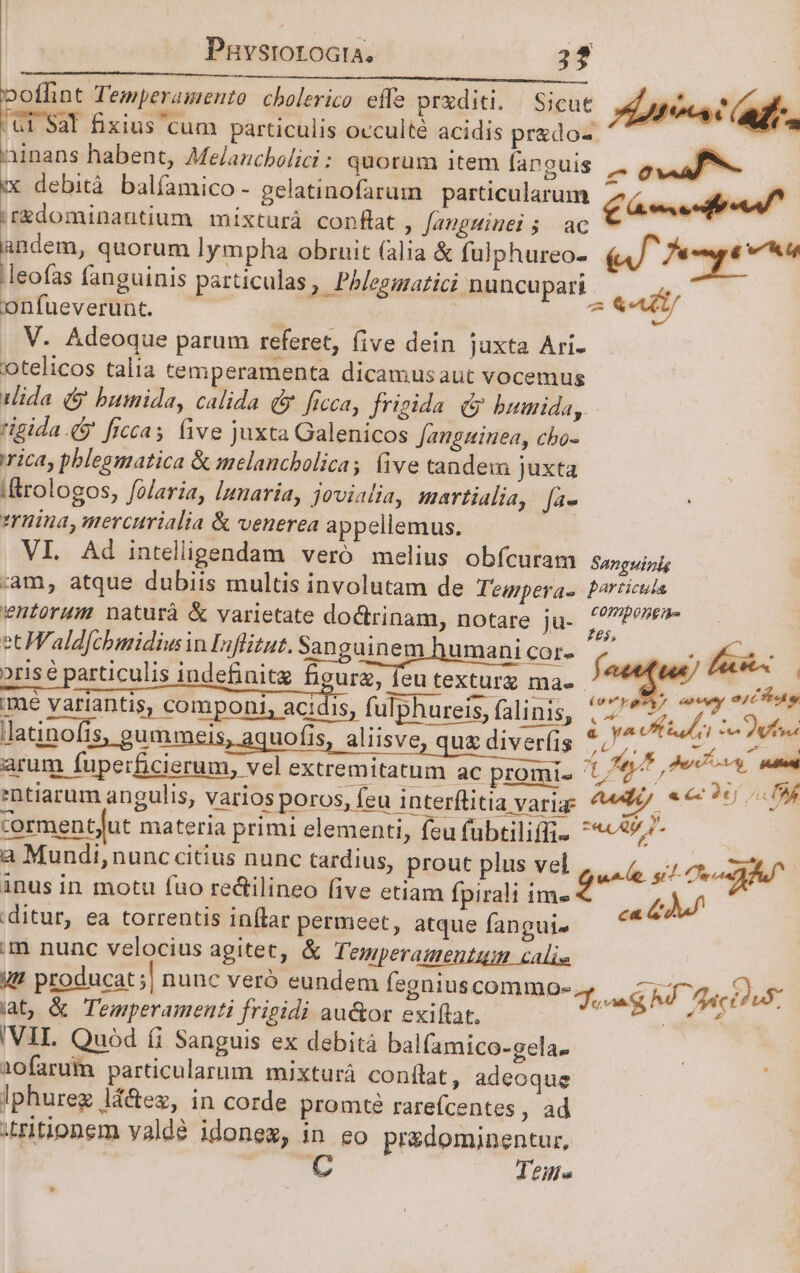 PHYSIOLOGIA. 33
possint Temperamento cholerico esse præditi. Sicut
qui Sal fixius cum particulis occultè acidis prædo-
minans habent, Melancholici: quorum item sanguis
ex debità balsamico-gelatinosarum particularum
prædominantium mixturâ constat, sanguinei; ac
tandem, quorum lympha obruit salia & sulphureo-
oleosas sanguinis particulas, Phlegmatici nuncupari
consueverunt.
V. Adeoque parum referet, sive dein juxta Ari-
stotelicos talia temperamenta dicamus aut vocemus
calida & humida, calida & sicca, frigida & humida,
frigida & sicca; sive juxta Galenicos sanguinea, cho-
lerica, phlegmatica & melancholica; sive tandem juxta
Astrologos, solaria, lunaria, jovialia, martialia, sa-
turnina, mercurialia & venerea appellemus.
VI. Ad intelligendam verò melius obscuram
tam, atque dubiis multis involutam de Tempera-
mentorum naturâ & varietate doctrinam, notare ju-
vet Waldschmidius in Institut. Sanguinem humani cor-
poris è particulis indefinitæ figuræ, seu texturæ ma-
ximè variantis, componi, acidis, sulphureis, salinis,
gelatinosis, gummeis, aquosis, aliisve, quæ diversis
suarum superficierum, vel extremitatum ac promi-
nentiarum angulis, varios poros, seu interstitia variæ
forment, ut materia primi elementi, seu subtilissi-
ma Mundi, nunc citius nunc tardius, prout plus vel
minus in motu suo rectilineo sive etiam spirali im-
peditur, ea torrentis instar permeet, atque sangui-
nem nunc velocius agitet, & Temperamentum cali-
dum producat; nunc verò eundem segnius commo-
veat, & Temperamenti frigidi auctor existat.
VII. Quòd si Sanguis ex debitâ balsamico-gela-
tinosarum particularum mixturâ constat, adeoque
sulphureæ lácteæ, in corde promtè rarescentes, ad
nutritionem valdè idoneæ, in eo prædominentur,
C Tem-
Sanguinis
particulæ
componen-
tes.